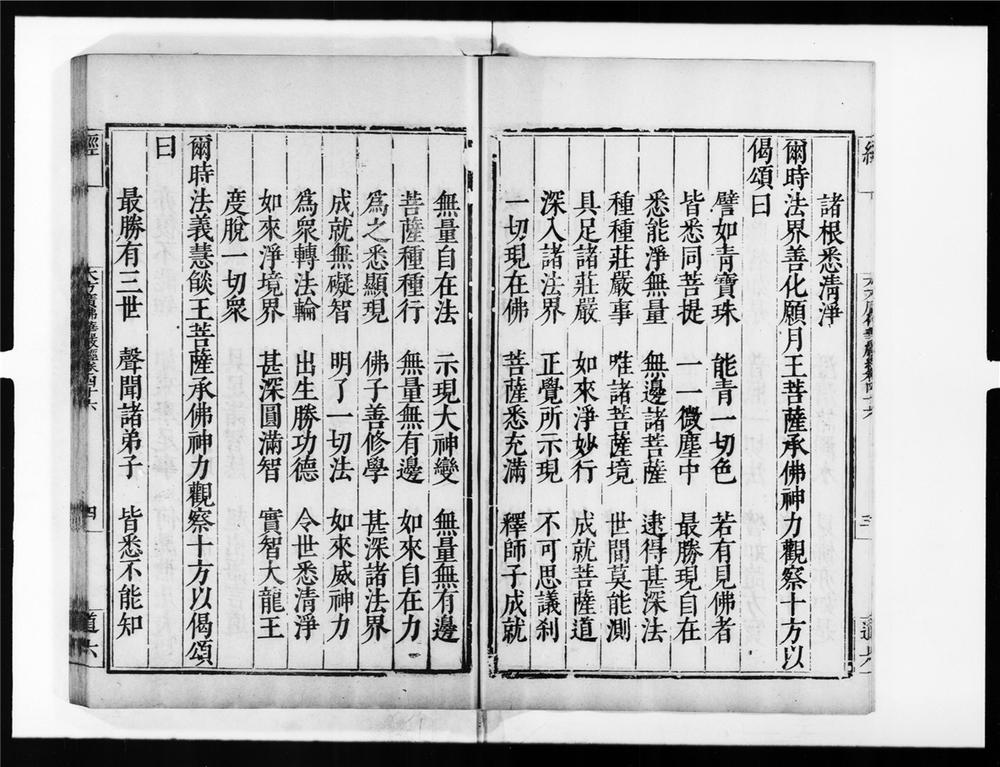 諸根悉清淨
爾時法界善化願月王菩薩承佛神力觀察十方以
偈頌曰
譬如青寶珠 能青一切色 若有見佛者
皆悉同菩提 一一微塵中 最勝現自在
悉能淨無量 無邊諸菩薩 逮得甚深法
種種莊嚴事 唯諸菩薩境 世間莫能測
具足諸莊嚴 如來淨妙行 成就菩薩道
深入諸法界 正覺所示現 不可思議刹
一切現在佛 菩薩悉充滿 釋師子成就
無量自在法 示現大神變 無量無有邊
菩薩種種行 無量無有邊 如來自在力
爲之悉顯現 佛子善修學 甚深諸法界
成就無礙智 明了一切法 如來威神力
爲衆轉法輪 出生勝功德 令世悉清淨
如來淨境界 甚深圓滿智 實智大龍王
度脫一切衆
爾時法義慧燄王菩薩承佛神力觀察十方以偈頌
曰
最勝有三世 聲聞諸弟子 皆悉不能知
經
大方廣佛華嚴經卷四十六
四
道六